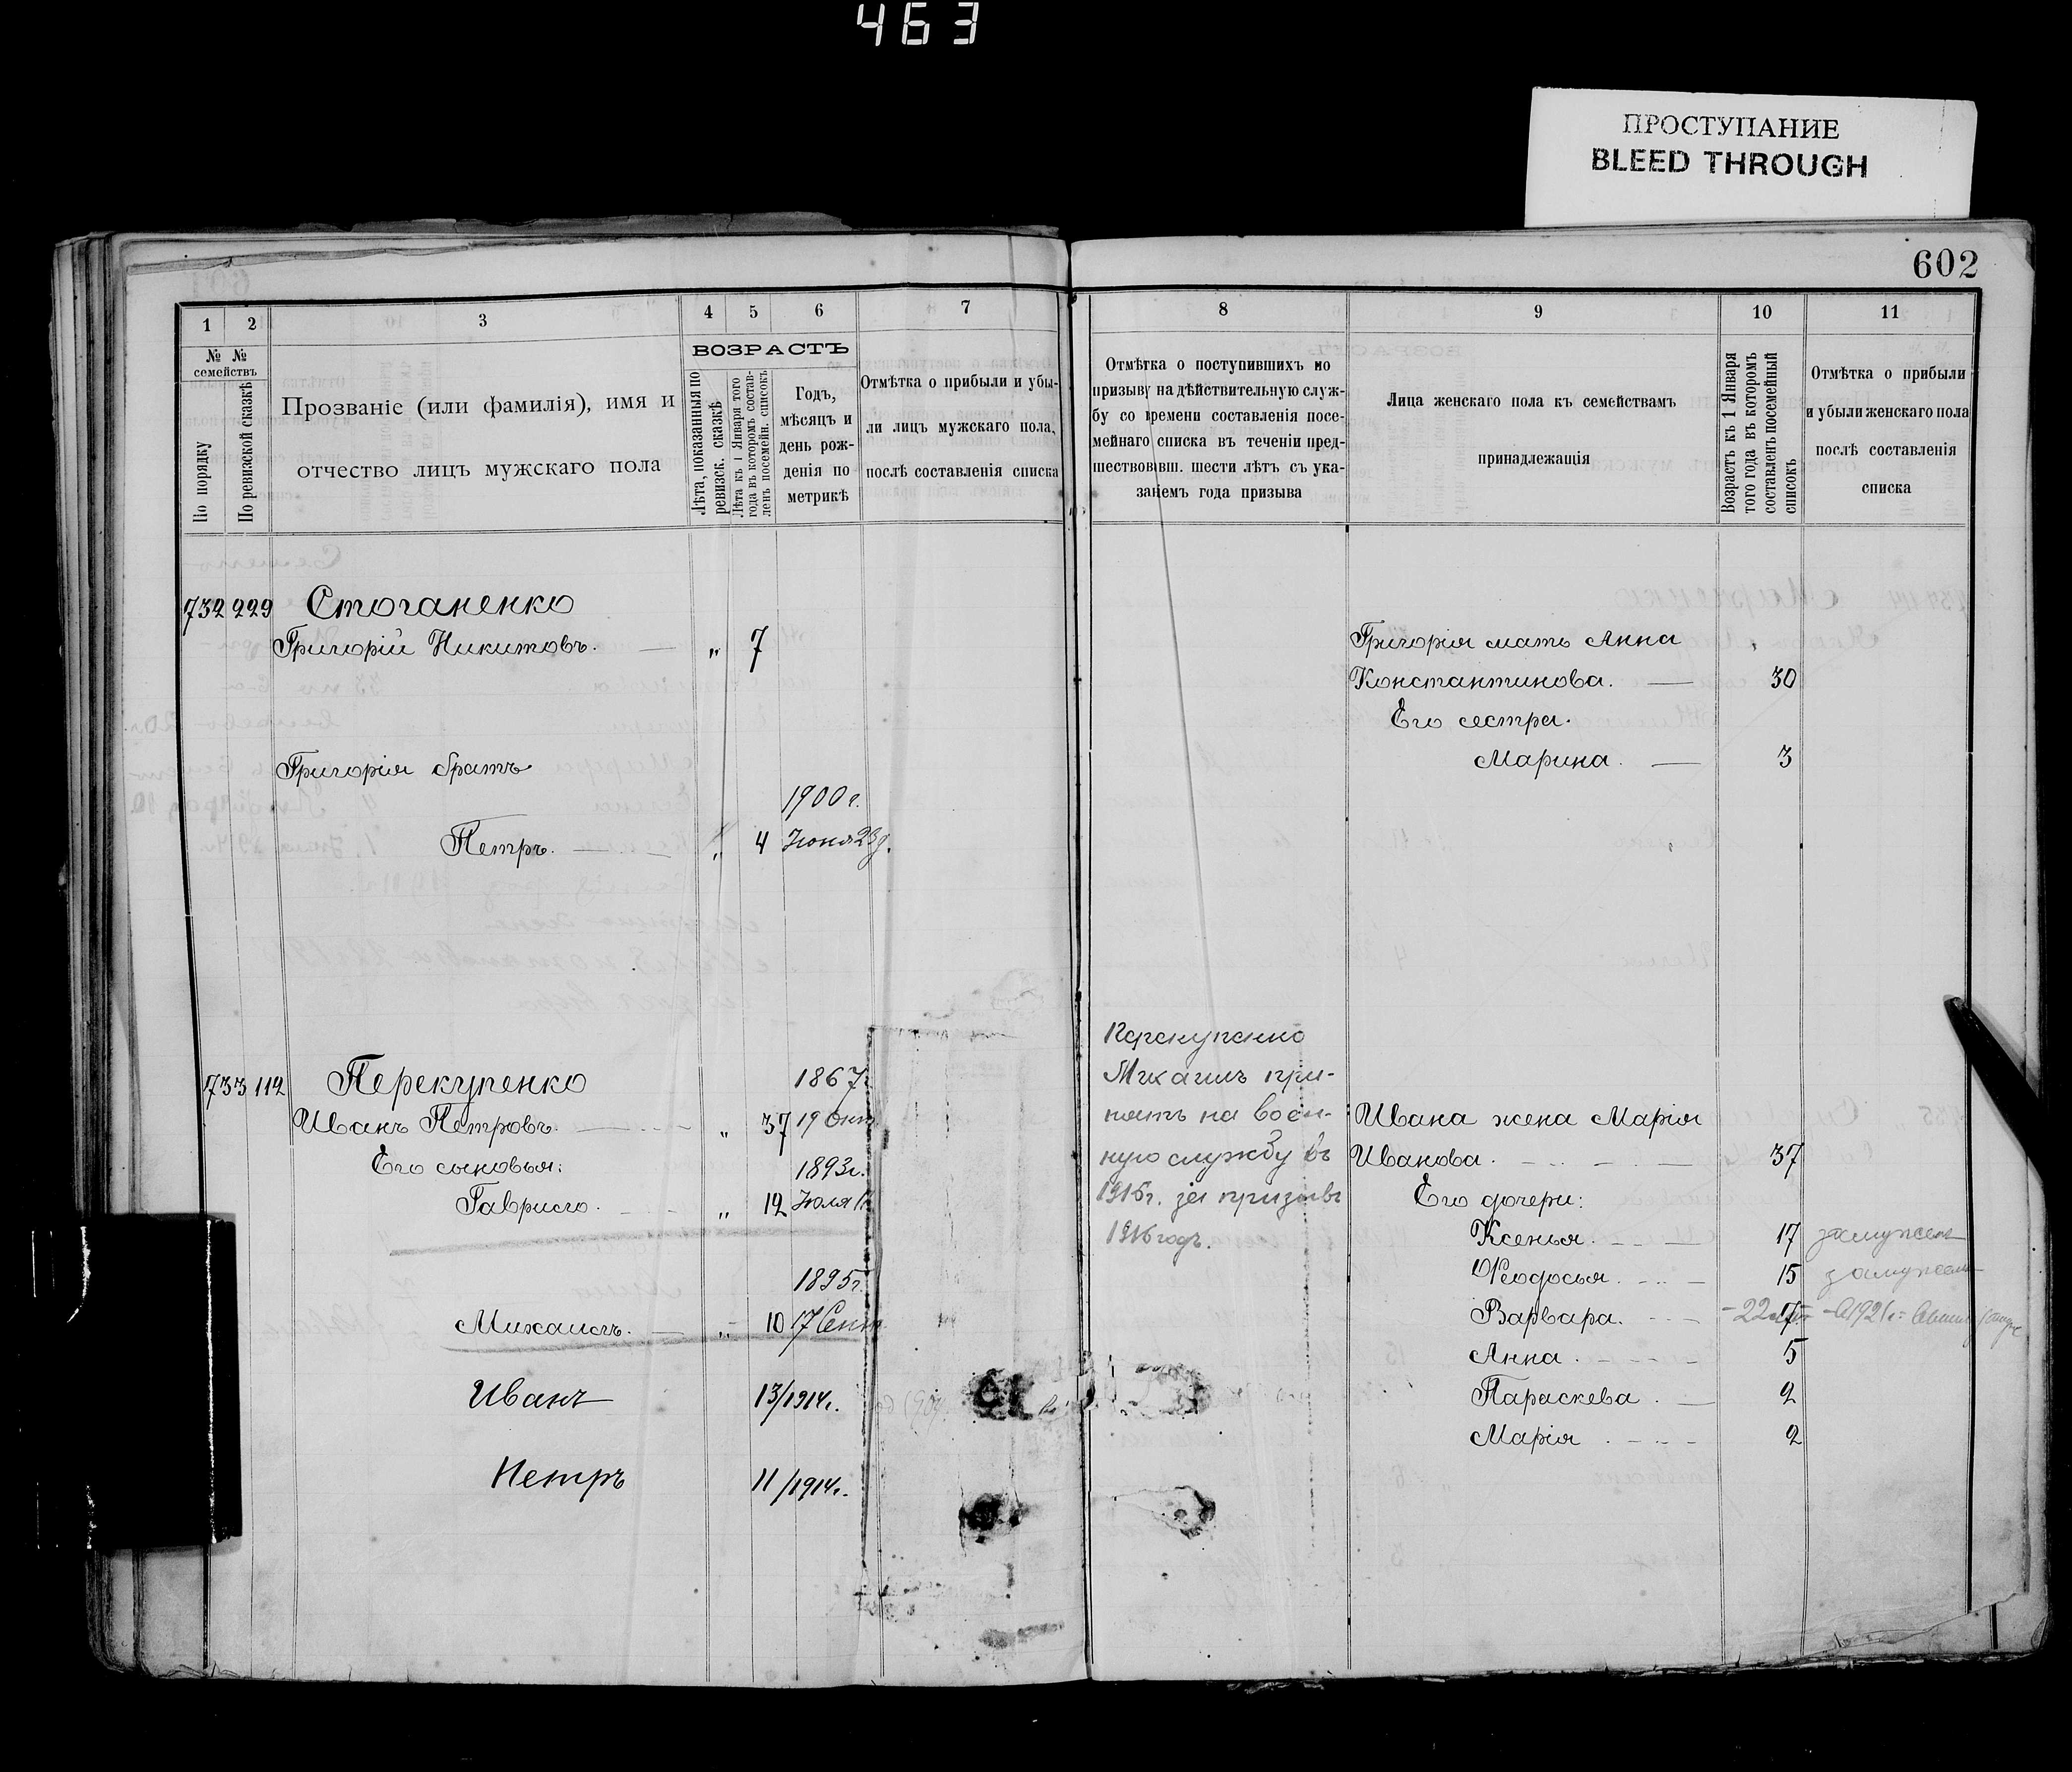 463
ПРОСТУПАНИЕ
BLEED THROUGH
602
1
2
3
4
5
6
7
8
9
10
11
№ №
семействъ
По порядку
По ревизской сказкѣ
Прозваніе (или фамилія), имя и
отчество лицъ мужскаго пола
ВОЗРАСТЪ
Лѣта, показанныя по
ревизск. сказкѣ
Лѣта къ 1 Января того
года въ которомъ состав-
ленъ посемейн. списокъ
Годъ,
мѣсяцъ и
день рож-
денія по
метрикѣ
Отмѣтка о прибыли и убы-
ли лицъ мужскаго пола,
послѣ составленія списка
Отмѣтка о поступившихъ по
призыву на дѣйствительную служ-
бу со времени составленія посе-
мейнаго списка въ теченіи пред-
шествовавш. шести лѣтъ съ ука-
заніемъ года призыва
Лица женскаго пола къ семействамъ
принадлежащія
Возрастъ къ 1 Января
того года въ которомъ
составленъ посемейный
списокъ
Отмѣтка о прибыли
и убыли женскаго пола
послѣ составленія
списка
732 229 Стоганенко
Григорій Никитовъ. — „ 7
Григорія мать Анна
Константинова. — 30
Его сестра.
Марина. — 3
Григорія братъ
1900 г.
Петръ. — „ 4 Іюня 23 д.
733 112 Перекупенко 1867 г.
Иванъ Петровъ. — „ 37 19 Окт
Его сыновья: 1893 г.
Гаврило. — „ 12 Юля 11
1895 г.
Михаилъ. — „ 10 17 Сент
Иванъ 13/1914 г.
Петръ 11/1914 г.
Перекупенко
Михаилъ при-
нятъ на воен-
ную службу въ
1915 г. за призывъ
1916 годъ.
Ивана жена Марія
Иванова. — 37
Его дочери:
Ксенья. — 17 замужемъ
Феодосья. — 15 замужемъ
Варвара. — 7
Анна. — 5
Параскева. — 2
Марія. — 2